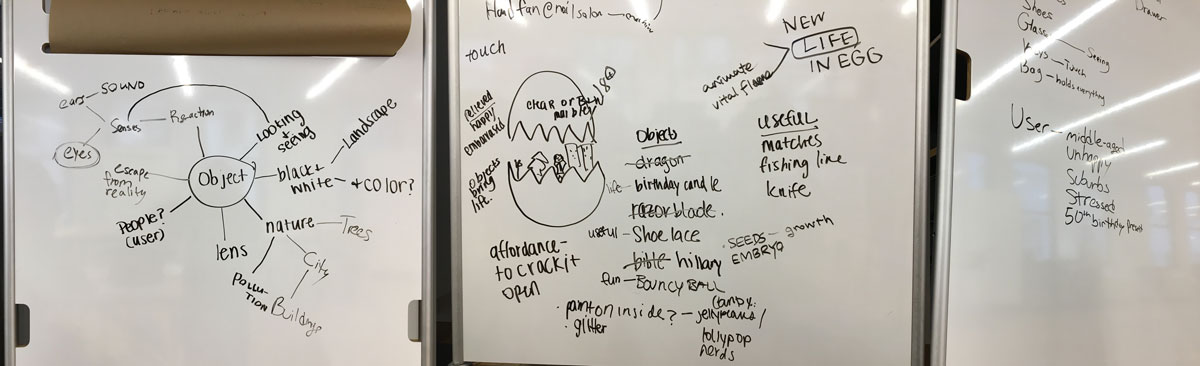 ears — SOUND
Senses
Reaction
eyes
Looking
+
seeing
Landscape
black +
white
+ COLOR?
Object
escape
from
reality
PEOPLE?
(user)
lens
nature
Trees
City
POLLU-
TION
Buildings
Hand fan @ nail salon
touch
NEW
LIFE
IN EGG
animate
vital flame
relieved
happy
embarrassed
objects
bring
life.
affordance-
to crack it
open
Objects
dragon
life - birthday candle
razorblade.
useful - Shoe lace
bible hillary
fun - BOUNCY BALL
useful
matches
fishing line
knife
. SEEDS - growth
EMBRYO
· paint on inside? - candy:
jellybeans/
· glitter
lollypop
nerds
Shoes
Drawer
Glass — Seeing
Keys — Touch
Bag — holds everything
User — middle-aged
Unhappy
Suburbs
Stressed
50th birthday present